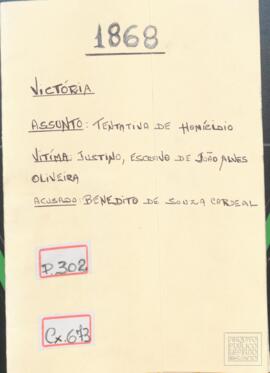 1868
VICTÓRIA
ASSUNTO: TENTATIVA DE HOMICÍDIO
VÍTIMA: JUSTINO, ESCRAVO DE JOÃO ALVES
OLIVEIRA
ACUSADO: BENEDITO DE SOUZA CARDEAL
P.302
Cx.673
ARQUIVO
PÚBLICO